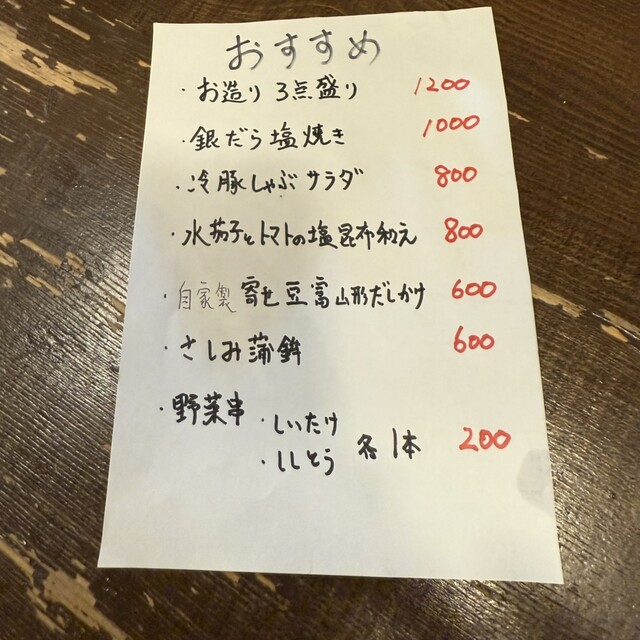 おすすめ
・お造り 3点盛り 1200
・銀だら塩焼き 1000
・冷豚しゃぶサラダ 800
・水茄子とトマトの塩昆布和え 800
・自家製 寄せ豆富山形だしかけ 600
・さしみ蒲鉾 600
・野菜串 ・しいたけ
・ししとう 各1本 200